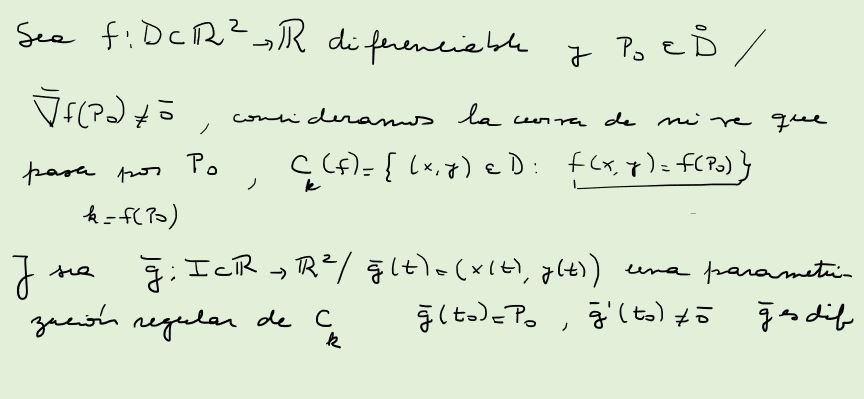 Sea f: D⊂ℝ² → ℝ diferenciable y P₀ ∈ D̊ /
∇̄f(P₀) ≠ ō , consideramos la curva de nivel que
pasa por P₀ , C_k(f) = { (x,y) ∈ D : f(x,y) = f(P₀) }
k = f(P₀)
Y sea ḡ: I⊂ℝ → ℝ² / ḡ(t) = (x(t), y(t)) una parametri-
zación regular de C_k ḡ(t₀) = P₀ , ḡ'(t₀) ≠ ō ḡ es dif